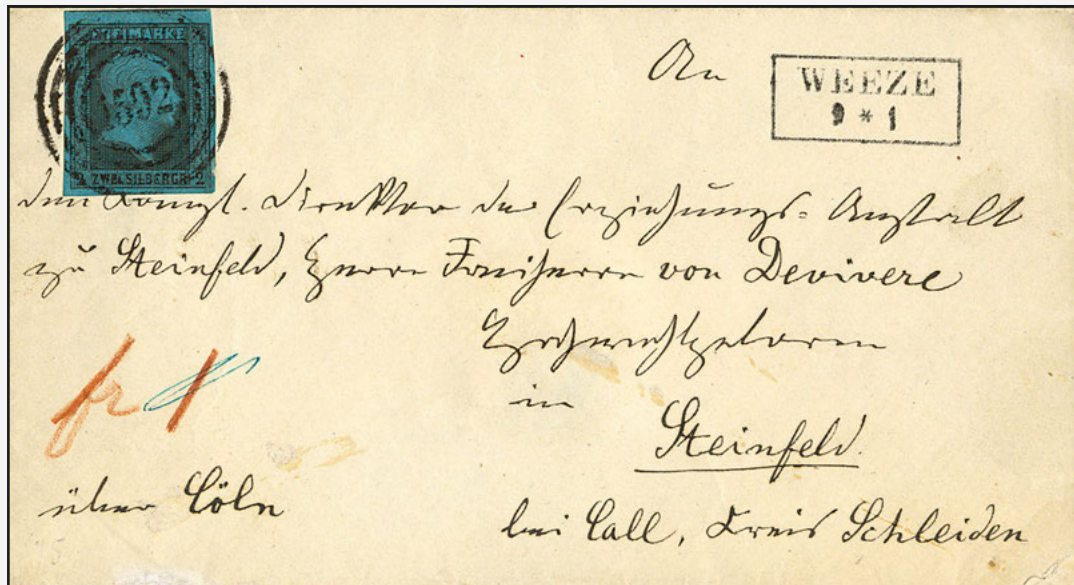 FREIMARKE
1592
2 ZWEI SILBERGR. 2
WEEZE
9 * 1
An
den Königl. Direktor der Erziehungs-Anstalt
zu Steinfeld, Herrn Freiherrn von Devivere
Hochwohlgeboren
in
Steinfeld.
bei Call, Kreis Schleiden
fr
über Cöln